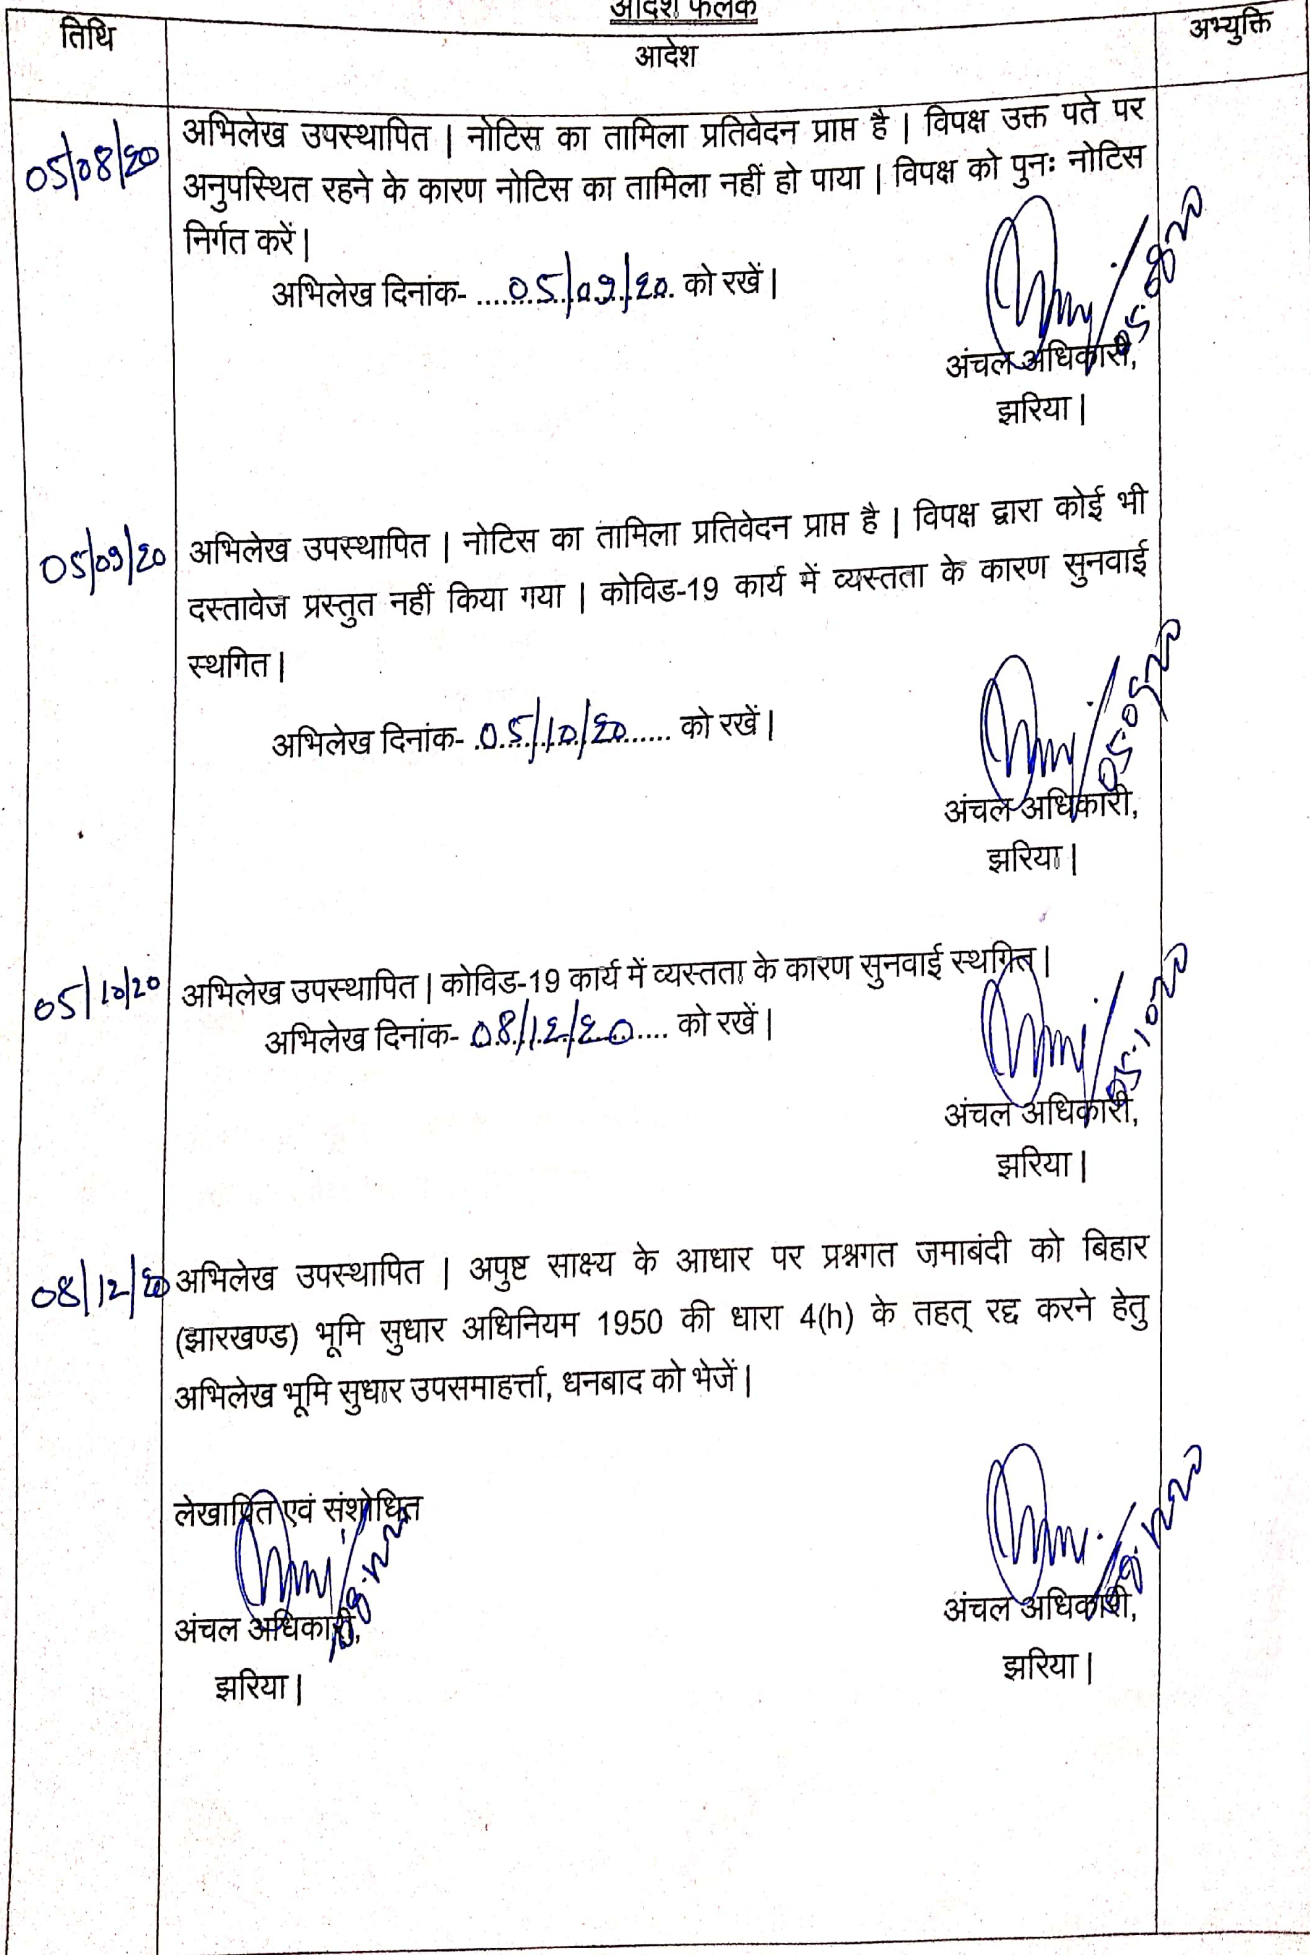 आदेश फलक
तिथि
आदेश
अभ्युक्ति
05/08/20
अभिलेख उपस्थापित | नोटिस का तामिला प्रतिवेदन प्राप्त है | विपक्ष उक्त पते पर
अनुपस्थित रहने के कारण नोटिस का तामिला नहीं हो पाया | विपक्ष को पुनः नोटिस
निर्गत करें |
अभिलेख दिनांक- ....05/09/20. को रखें |
05.08.20
अंचल अधिकारी,
झरिया |
05/09/20
अभिलेख उपस्थापित | नोटिस का तामिला प्रतिवेदन प्राप्त है | विपक्ष द्वारा कोई भी
दस्तावेज प्रस्तुत नहीं किया गया | कोविड-19 कार्य में व्यस्तता के कारण सुनवाई
स्थगित |
अभिलेख दिनांक- .05/10/20...... को रखें |
05.09.20
अंचल अधिकारी,
झरिया |
05/10/20
अभिलेख उपस्थापित | कोविड-19 कार्य में व्यस्तता के कारण सुनवाई स्थगित |
अभिलेख दिनांक- 08/12/20.... को रखें |
05.10.20
अंचल अधिकारी,
झरिया |
08/12/20
अभिलेख उपस्थापित | अपुष्ट साक्ष्य के आधार पर प्रश्नगत जमाबंदी को बिहार
(झारखण्ड) भूमि सुधार अधिनियम 1950 की धारा 4(h) के तहत् रद्द करने हेतु
अभिलेख भूमि सुधार उपसमाहर्त्ता, धनबाद को भेजें |
लेखापित एवं संशोधित
अंचल अधिकारी,
झरिया |
अंचल अधिकारी,
झरिया |